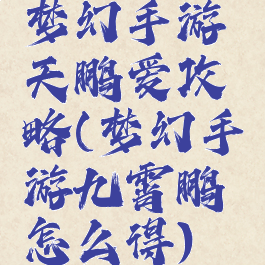 梦幻手游
天鹏爱攻
略(梦幻手
游九霄鹏
怎么得)